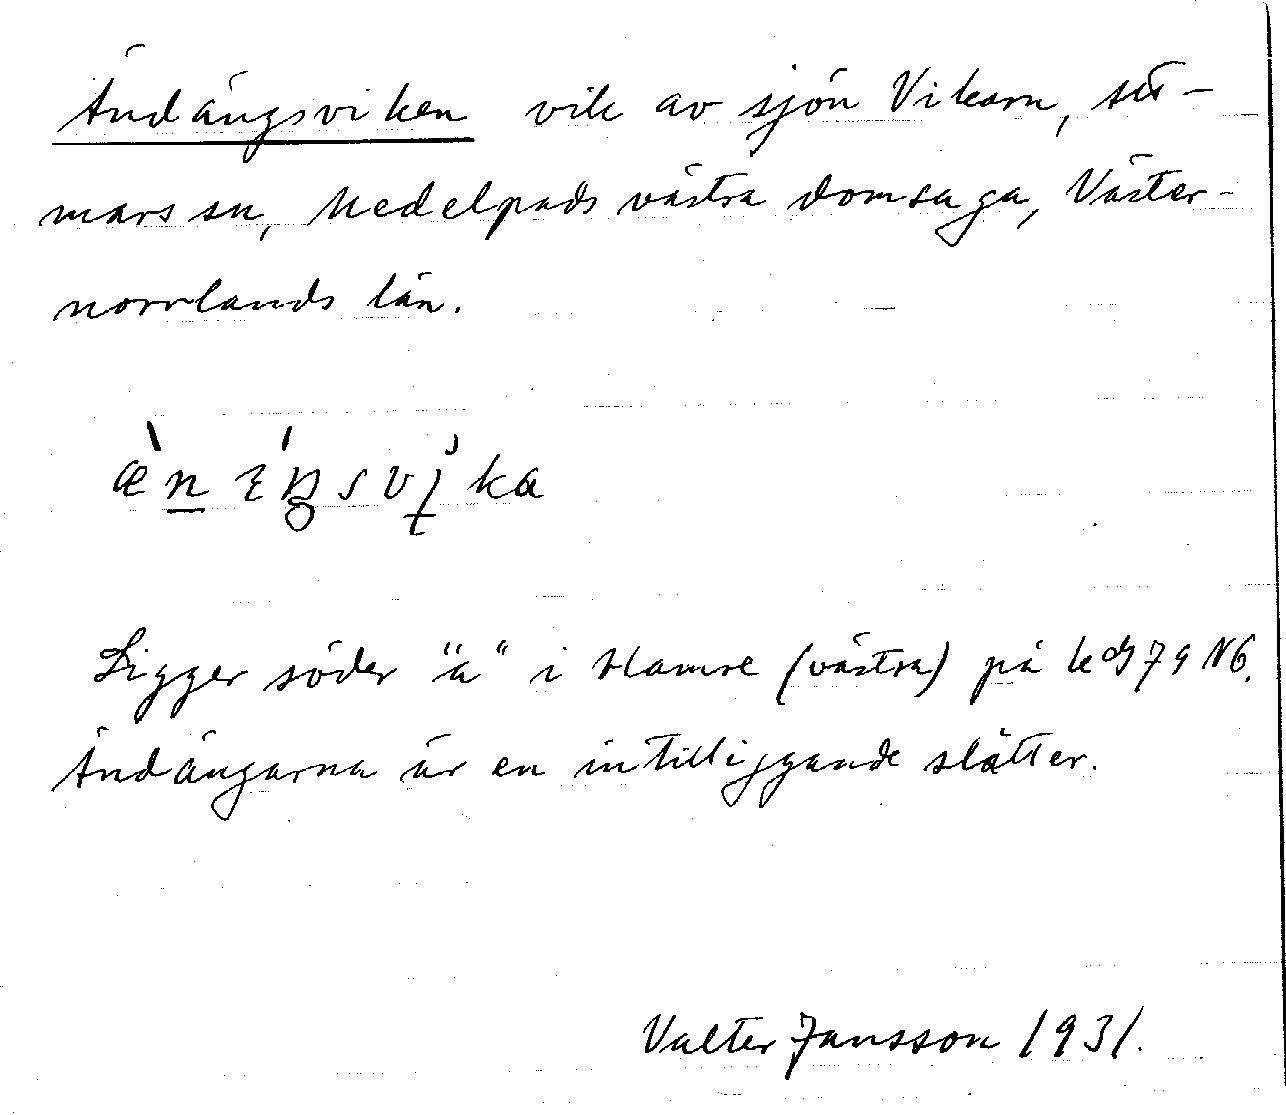 Ändängsviken vik av sjön Vikarn, Att-
mars sn, Medelpads västra domsaga, Väster-
norrlands län.
Ligger söder "ä" i Hamre (västra) på kbl 79 NG.
Ändängarna är en intilliggande slätter.
Valter Jansson 1931.